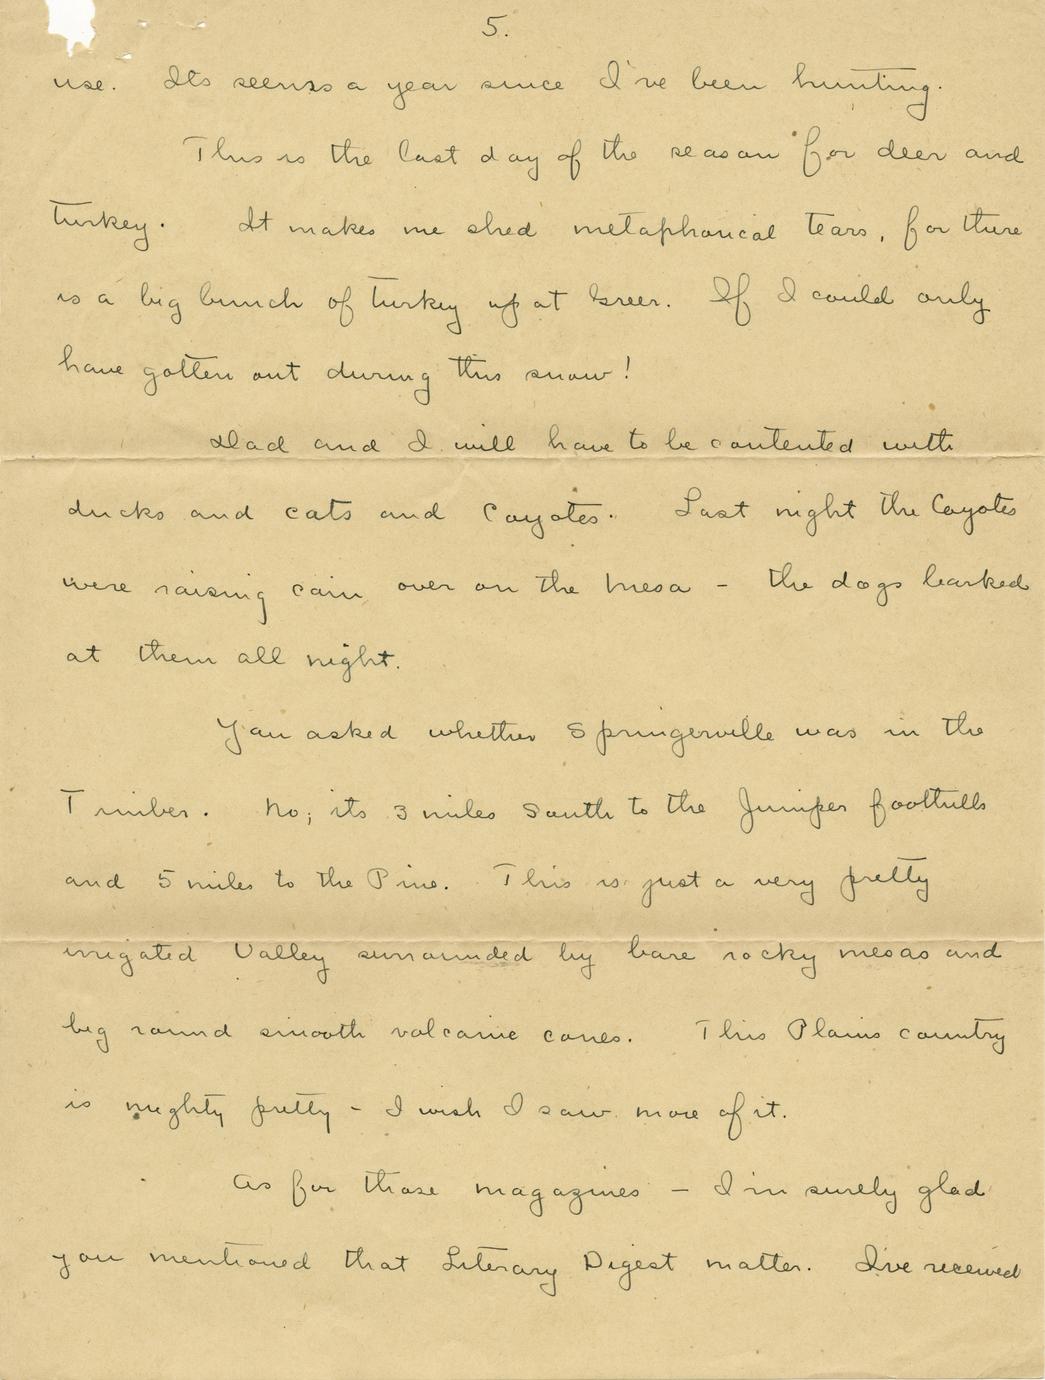 5.
use. Its seems a year since I've been hunting.
This is the last day of the season for deer and
turkey. It makes me shed metaphorical tears, for there
is a big bunch of turkey up at Greer. If I could only
have gotten out during this snow!
Dad and I will have to be contented with
ducks and cats and Coyotes. Last night the Coyotes
were raising cain over on the Mesa - the dogs barked
at them all night.
You asked whether Springerville was in the
Timber. No; its 3 miles South to the Juniper foothills
and 5 miles to the Pine. This is just a very pretty
irrigated Valley surrounded by bare rocky mesas and
big round smooth volcanic cones. This Plains country
is mighty pretty - I wish I saw more of it.
As for those magazines - I'm surely glad
you mentioned that Literary Digest matter. I've received